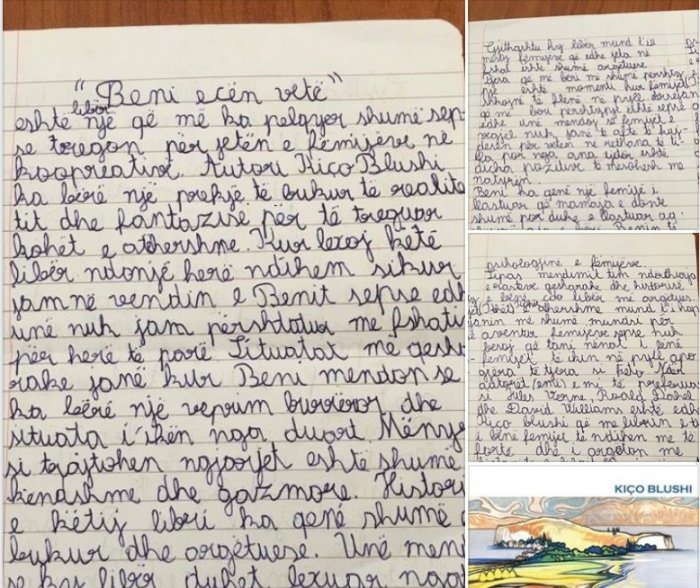 "Beni ecën vetë"
është libër një që më ka pelqyer shumë sep
se tregon për jetën e fëmijëve në
kooperativë. Autori Kiço Blushi
ka bërë një prekje të bukur të realite
tit dhe fantazisë për të treguar
kohët e athershme. Kur lexoj këtë
libër ndonjë herë ndihem sikur
jam në vendin e Benit sepse edh
unë nuk jam përshtatur me fshati
për herë të parë Situatat më qesha
rake janë kur Beni mendon se
ka bërë një veprim burrëror dhe
situata i ikën nga duart. Mënyr
si trajtohen ngjarjet eshtë shumë
këndshme dhe gazmore. Histori
e këtij libri ka qenë shumë
bukur dhe argëtuese. Unë mend
se ky libër duhet lexuar nga
Gjithashtu ky libër mund t'iu
mësoj fëmijëve që edhe jeta në
fshat është shumë argëtuese
Tjera që më bëri më shumë përshtyp
një është momenti kur femijët
shkojnë të flenë në pyll
që më bëri përshtypje është sepse
edhe unë mendoj se fëmijët e
vegjël nuk janë të aftë të kuj
desen për veten në rrethana të ti
lla por nga ana tjetër është
diçka pozitive të mësohesh me
natyrën.
Beni ka qenë një fëmijë i
llastuar që mamaja e donte
shumë por duke e llastuar aq
psikologjinë e fëmijëve.
Sipas mendimit tim ndërthurja
e rasteve qesharake dhe historisë
e bënë çdo libër më argëtues
janin më shumë mundësi për
aventur fëmijëve sepse nuk
besoj që tani nënat i lënë
femijët të rrinë në pyll apo
gjëra të tjera si këto. Për
autorët (emi) e mi të preferuar
si Jules Verne, Roald Dahel
dhe David Williams është edhe
Kiço Blushi që me librin e t
i bënë femijët të ndihen më të
fortë dhe i argëton me
KIÇO BLUSHI